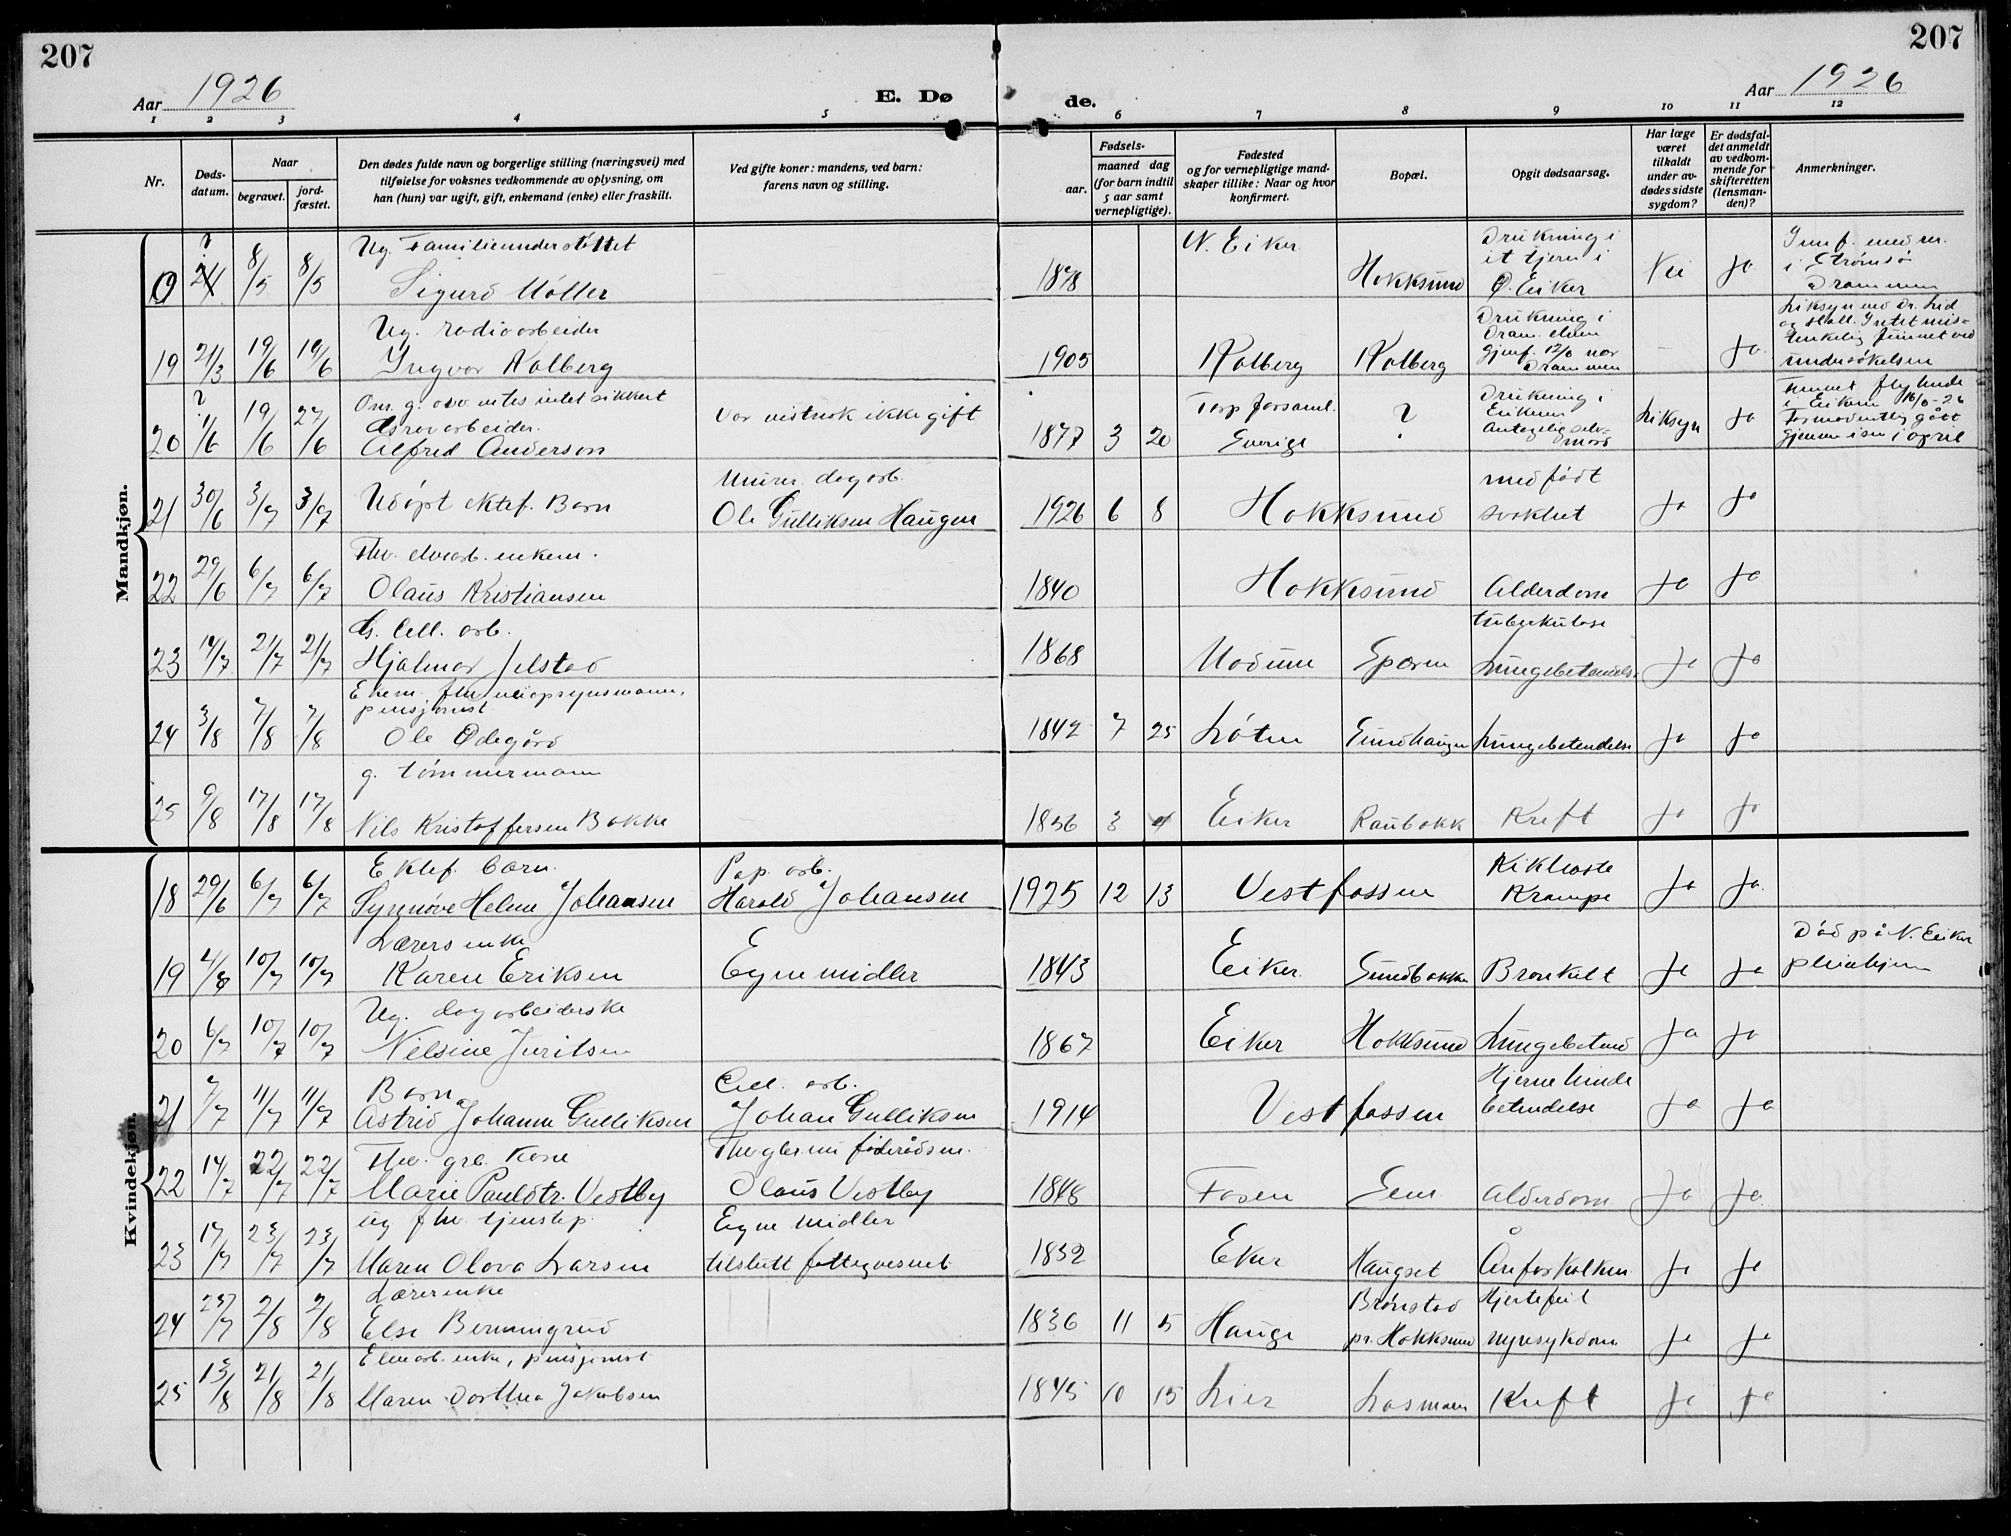 207
207
Aar 1926
E. Dø
de.
Aar 1926
1 2 3 4 5 6 7 8 9 10 11 12
Nr.
Døds-
datum.
Naar
begravet.
jord-
fæstet.
Den dødes fulde navn og borgerlige stilling (næringsvei) med
tilføielse for voksnes vedkommende av oplysning, om
han (hun) var ugift, gift, enkemand (enke) eller fraskilt.
Ved gifte koner: mandens, ved barn:
farens navn og stilling.
Fødsels-
aar.
maaned dag
(for barn indtil
5 aar samt
vernepligtige).
Fødested
og for vernepligtige mand-
skaper tillike: Naar og hvor
konfirmert.
Bopæl.
Opgit dødsaarsag.
Har læge
været
tilkaldt
under av-
dødes sidste
sygdom?
Er dødsfal-
det anmeldt
av vedkom-
mende for
skifteretten
(lensman-
den)?
Anmerkninger.
Mandkjøn.
0 8/5 8/5 Ug. Familieunderstøttet
Sigurd Møller
1878 N. Eiker Hokksund
Drukning i
et tjern i
Ø. Eiker
Nei ja
i Strømsø
Drammen
19 21/3 19/6 19/6 Ug. radioarbeider
Ingvar Kolberg
1905 Kolberg Kolberg
Drukning i
Dram. elven
gjenf. 12/6 nær
Drammen
— ja
Liksyn ved Dr. Lid
og Hall. Intet mis-
tenkelig funnet ved
undersøkelsen
20 ? 1/6 19/6 27/6 Om g. vites intet sikkert
Alfred Anderson
Var nistnok ikke gift
1877 3 20 Torp forsaml.
Sverige
?
Drukning i
Eikern
Antagelig selv-
mord
Liksyn ja
Funnet flytende
i Eikern 16/6-26
Formodentlig gått
gjennem isen i april
21 30/6 3/7 3/7 Udøpt ektef. Barn
Murer. dagarb.
Ole Gulliksen Haugen
1926 6 8 Hokksund
medfødt
svakhet
ja ja
22 29/6 6/7 6/7 Fhv. elvearb. enkem.
Olaus Kristiansen
1840 Hokksund Alderdom ja ja
23 17/7 21/7 21/7 G. Cell. arb.
Hjalmar Jelstad
1868 Modum Sparen
tuberkuløse
Lungebetendels.
ja ja
24 3/8 7/8 7/8 Ekem. fhv veiopsynsmann,
pensjonist
Ole Ødegård
1842 7 25 Løten Sundhaugen Lungebetendelse ja ja
25 9/8 17/8 17/8 g. tømmermann
Nils Kristoffersen Bakke
1836 3 4 Eiker Raubakk Kreft ja ja
Kvindekjøn.
18 29/6 6/7 6/7 Ektef. barn.
Synnøve Helene Johansen
Pap. arb.
Harald Johansen
1925 12 13 Vestfossen
Kikhoste
Krampe
ja ja
19 4/7 10/7 10/7 Lærers enke
Karen Eriksen
Egne midler
1843 Eiker Sundbakke Bronkitt ja ja
Død på N. Eiker
pleiehjem
20 6/7 10/7 10/7 Ug. dagarbeiderske
Nilsine Juritsen
1867 Eiker Hokksund Lungebetend ja ja
21 7/7 11/7 11/7 Barn
Astrid Johanne Gulliksen
Cell. arb.
Johan Gulliksen
1914 Vestfossen
Hjernehinde
betendelse
ja ja
22 14/7 22/7 22/7 Fhv. grb. kone
Marie Paulsdtr. Vestby
Fhv gbr. nu føderådsm.
Olaus Vestby
1848 Fosen Sem Alderdom ja ja
23 17/7 23/7 23/7 ug fhv. tjenstep.
Maren Olava Larsen
Egne midler
tilslutt fattigvesnet
1832 Eker Haugset Åreforkalken ja ja
24 27/7 2/8 2/8 Lærerenke
Else Bermingrud
1836 11 5 Hauge
Brønstad
pr. Hokksund
Hjertefeil
nyresykdom
ja ja
25 13/8 21/8 21/8 Elvearb. enke, pensjonist
Maren Dorthea Jakobsen
1845 10 15 Lier Losmoen Kreft ja ja